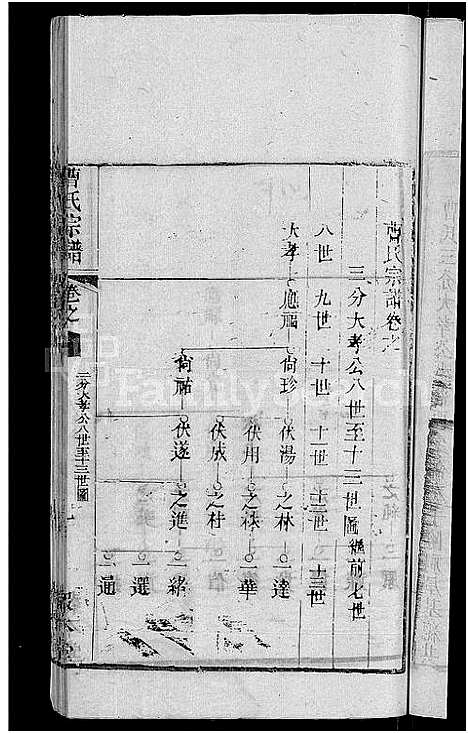 曹氏宗譜卷之
三分大孝公八世至十三世圖繼前七世
八世 九世 十世 十一世 十二世 十三世
大孝 應福 尙珍 伏湯 之林 一達
伏用 之 一華
伏成 之柱
尙 伏遂 之進 一緒
一選
一通
曹氏宗譜 卷之
三分大孝公八世至十三世圖
Family